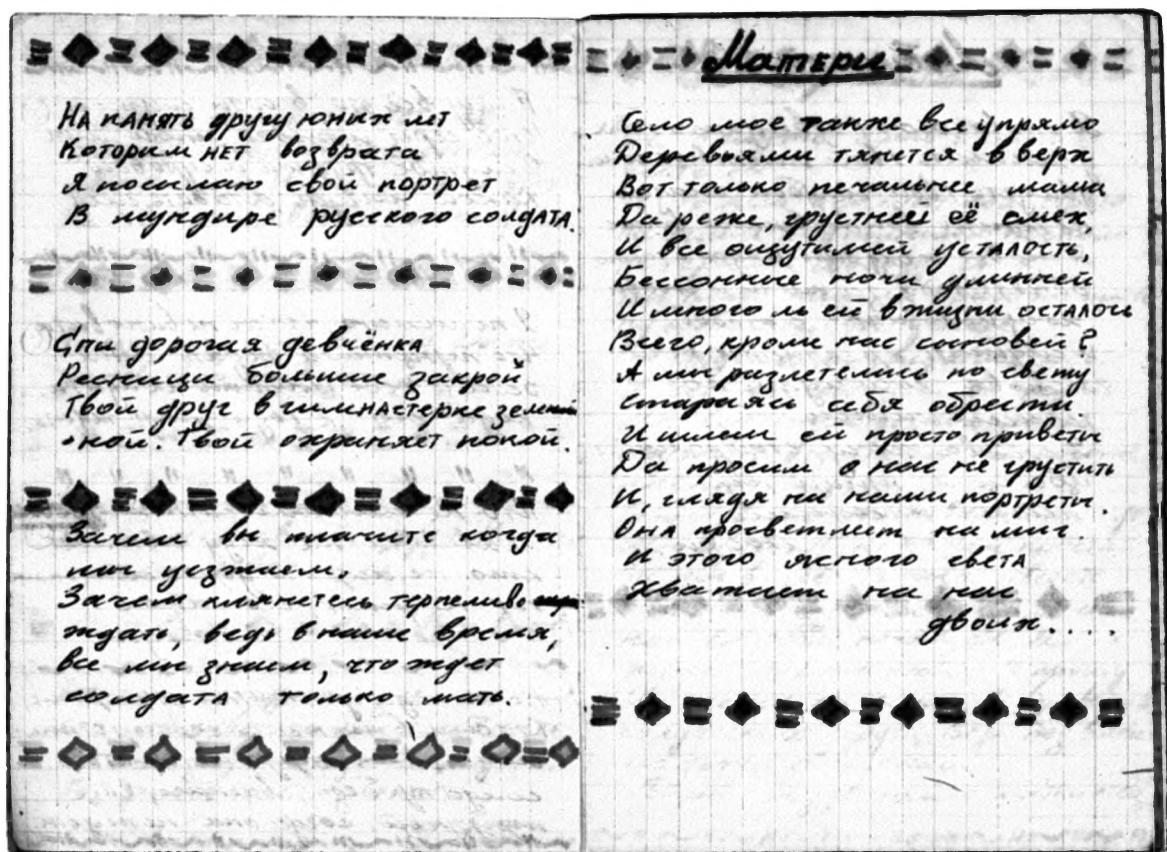 На память другу юных лет
Которим нет возврата
Я посилаю свой портрет
В мундире русского солдата.
Спи дорогая девчёнка
Ресници большие закрой
Твой друг в гимнастерке зелен
ной. Твой охраняет покой.
Зачем вы плачите когда
мы уезжаем.
Зачем клянетесь терпеливо
ждать, ведь в наше время,
все мы знаем, что ждет
солдата только мать.
Матери
Село мое также все упрямо
Деревьями тянится в верх
Вот только печальнее мама
Да реже, грустней её смех,
И все ощутимей усталость,
Бессонные ночи длинней
И много ль ей в жизни осталось
Всего, кроми нас сыновей?
А мы разлетелись по свету
Стараясь себя обрести.
И шлем ей просто приветы
Да просим о нас не грустить
И, глядя на наши портреты.
Она просветлит на миг.
И этого ясного света
Хватает на нас
двоих....